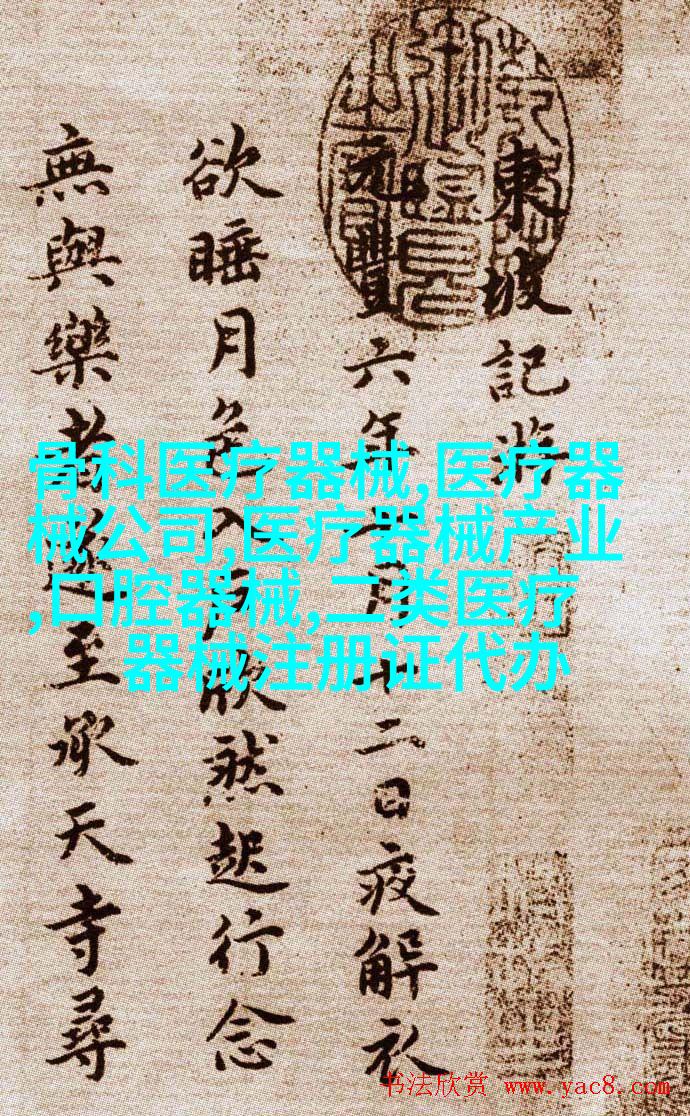 東坡記游
元豐六年十月十二日夜解衣
欲睡月色入户欣然起行念
無與樂者遂至承天寺尋
骨科医疗器械,医疗器
械公司,医疗器械产业
,口腔器械,二类医疗
器械注册证代办
书法欣赏 www.yac8.com